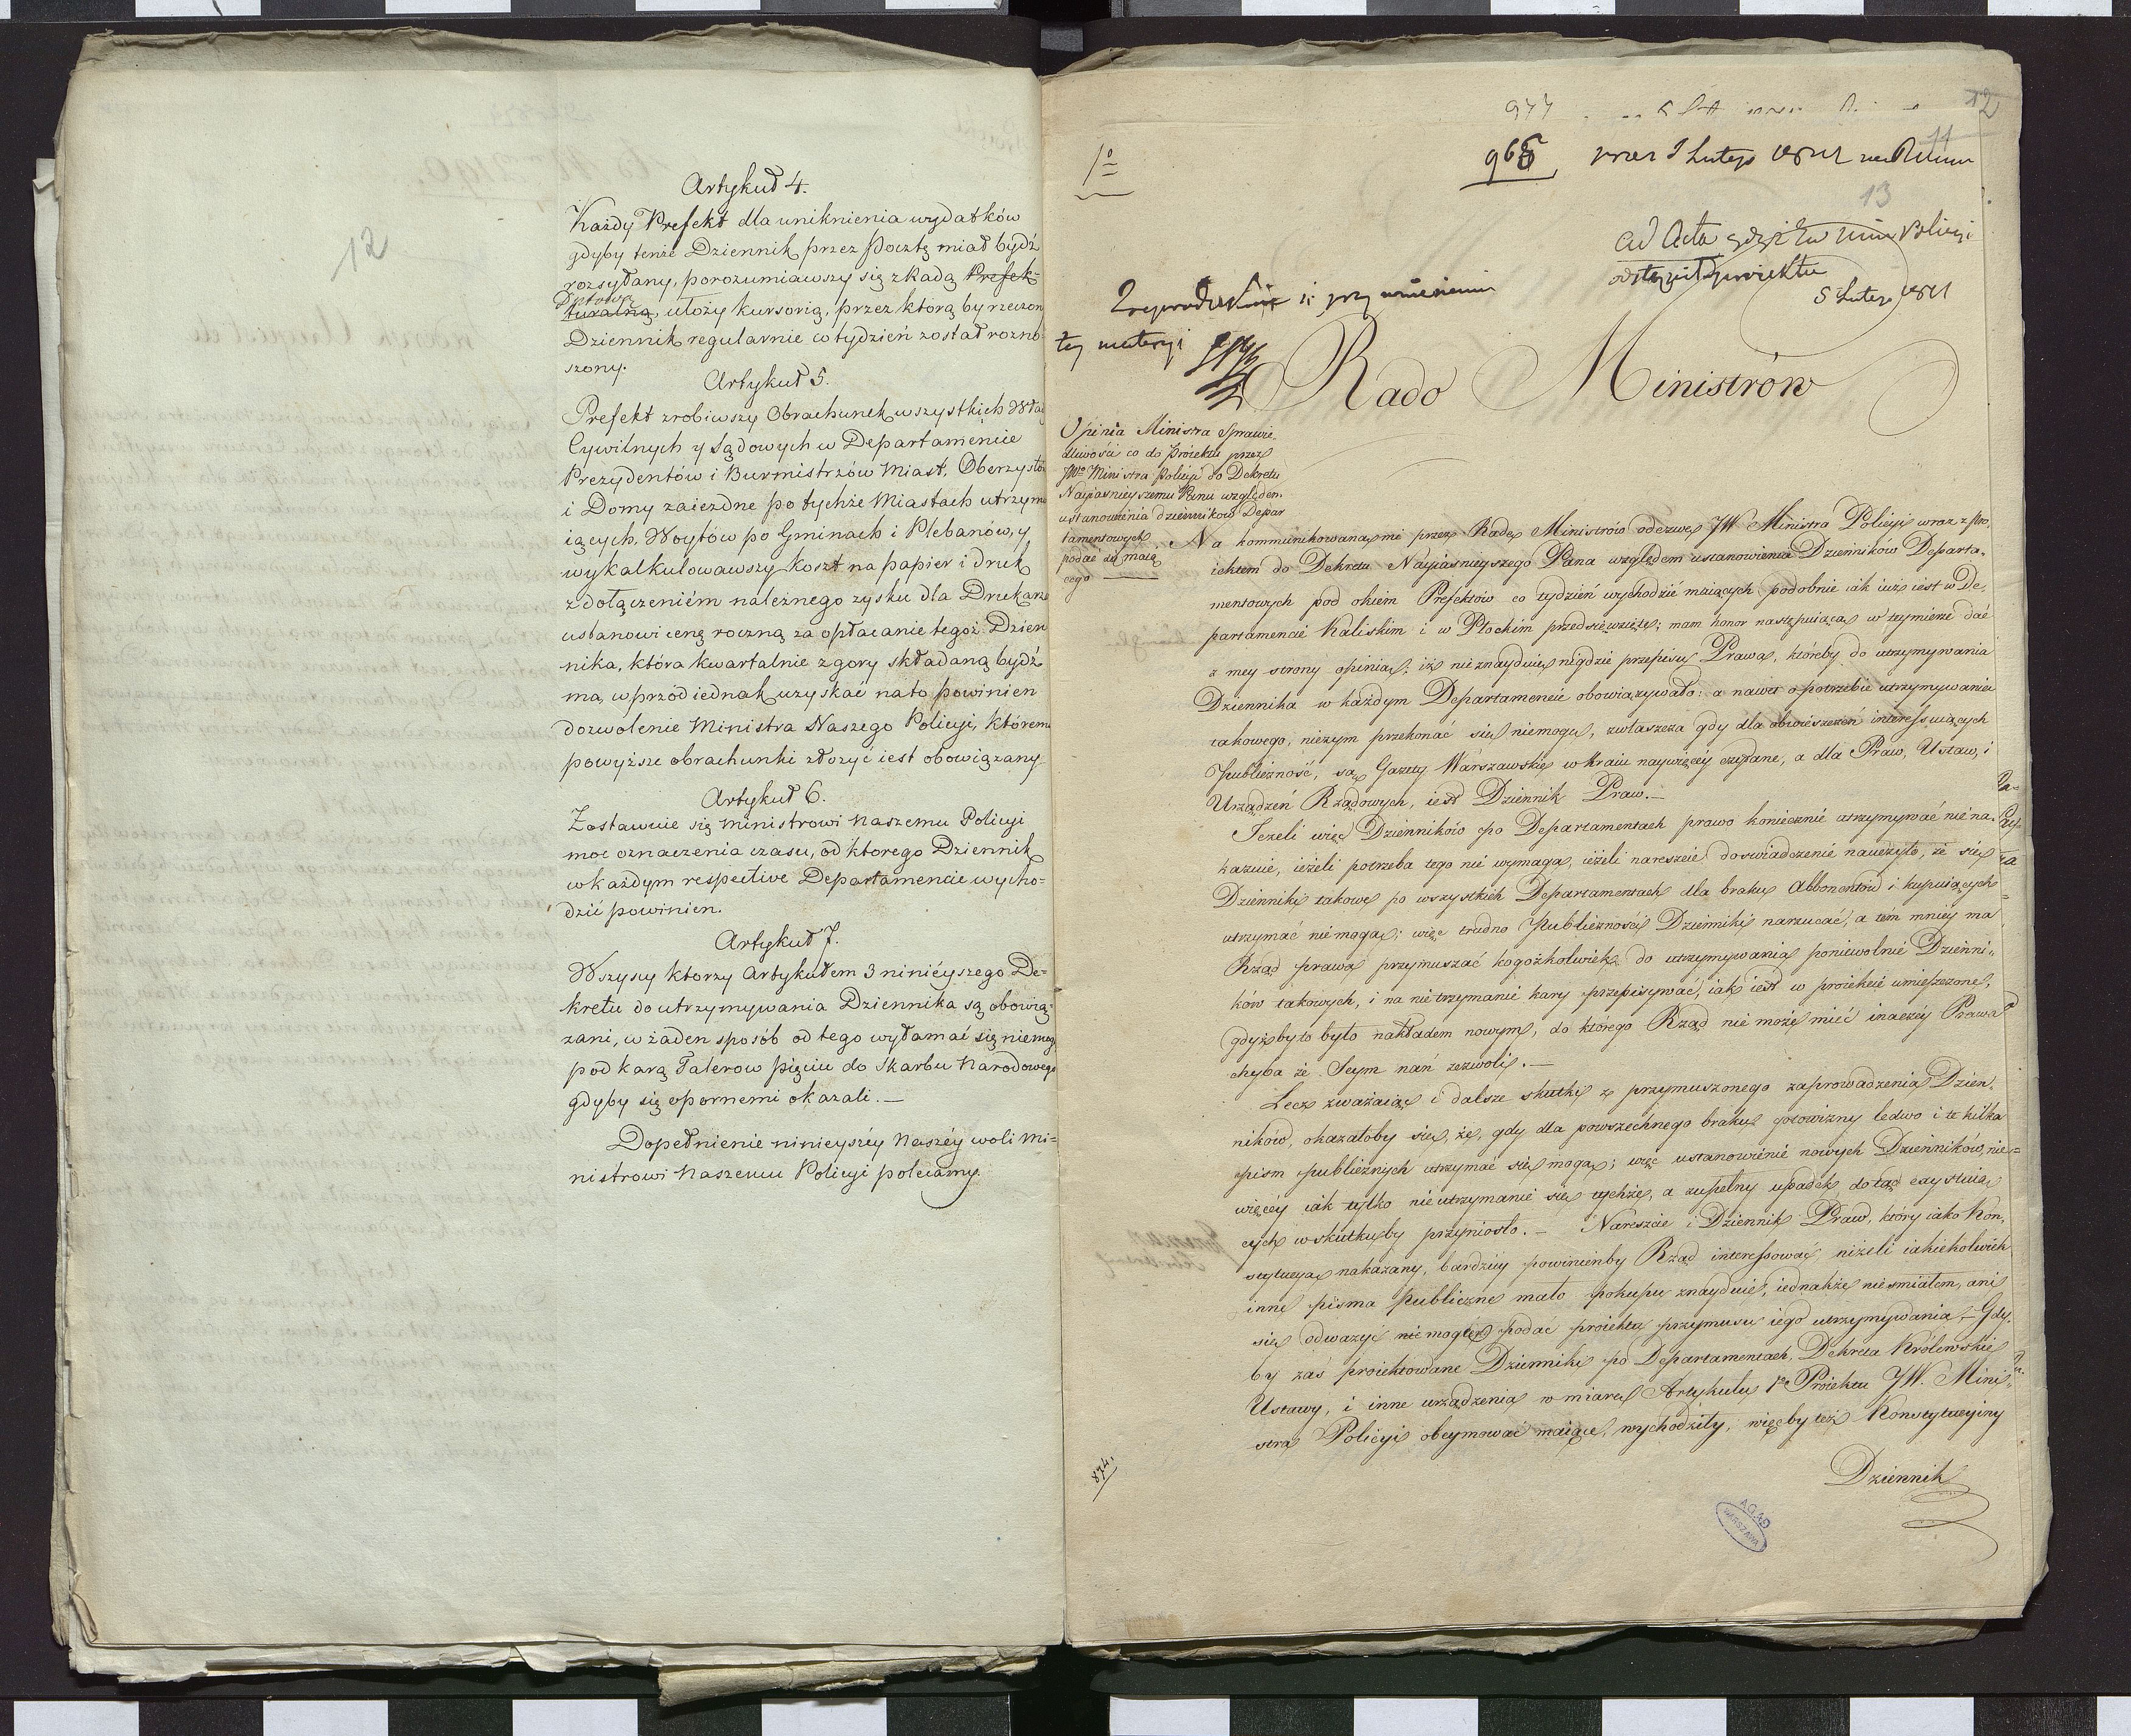 12
Artykuł 4.
Każdy Prefekt dla uniknienia wydatków
gdyby tenże Dziennik przez Pocztę miał bydź
rozsyłany, porozumiawszy się z Radą Prefek=
Dptową
turalną, ułoży kursorią, przez którą by rzeczon
Dziennik regularnie co tydzień został rozno=
szony.
Artykuł 5.
Prefekt zrobiwszy Obrachunek wszystkich Wła
Cywilnych y Sądowych w Departamencie
Prezydentów i Burmistrzów Miast, Oberzystó
i Domy zaiezdne po tychże Miastach utrzym
iących, Woytów po Gminach i Plebanów, y
wykalkulowawszy koszt na papier i druk
z dołączeniém należnego zysku dla Drukarz
ustanowi cenę roczną za opłacanie tegoż Dzien
nika, która kwartalnie z gory składaną bydź
ma, w przód iednak uzyskać na to powinien
dozwolenie Ministra Naszego Policyi, którem
powyższe obrachunki złożyć iest obowiązany
Artykuł 6.
Zostawuie się Ministrowi Naszemu Policyi
moc oznaczenia czasu, od ktorego Dziennik
w każdym respective Departamencie wycho=
dzić powinien.
Artykuł 7.
Wszyscy ktorzy Artykułem 3 ninieyszego De=
kretu do utrzymywania Dziennika są obowią=
zani, w żaden sposób od tego wyłamać się niemog
pod karą Talerow pięciu do Skarbu Narodowego
gdyby się opornemi okazali. —
Dopełnienie ninieyszéy Naszéy woli Mi=
nistrowi Naszemu Policyi polecamy.
977
12
11
965 5 Lutego
13
1º
ad Acta gdyż Policyi
odstąpił proiektu
5 Lutego 1811
przy wniesieniu
tey materyi
Rado Ministrów
Opinia Ministra Sprawie-
dliwości co do Proiektu przez
JWo Ministra Policyi do Dekretu
Nayiasnieyszemu Panu względem
ustanowienia dzienników Depar
tamentowych
podać się maią
cego
Na kommunikowaną mi przez Radę Ministrów odezwę JW Ministra Policyi wraz z Pro-
iektem do Dekretu Nayiasnieyszego Pana względem ustanowienia Dzienników Departa-
mentowych pod okiem Prefektów co tydzień wychodzić maiących podobnie iak iuż iest w De-
partamencie Kaliskim i w Płockim przedsięwzięte; mam honor następuiącą w teymierze dać
z mey strony opinią; iż nieznayduię nigdzie przepisu Prawa, ktoreby do utrzymywania
Dziennika w każdym Departamencie obowiązywało: a nawet o potrzebie utrzymywania
takowego, niczym przekonać się niemogę, zwłaszcza gdy dla obwieszczeń interessuiących
Publiczność, są Gazety Warszawskie w kraiu naywięcéy czytane, a dla Praw, Ustaw, i
Urządzeń Rządowych, iest Dziennik Praw. —
Jeżeli więc Dzienników po Departamentach prawo koniecznie utrzymywać nie na-
kazuie, ieżeli potrzeba tego nie wymaga, ieżeli nareszcie doswiadczenie nauczyło, że się
Dzienniki takowe po wszystkich Departamentach dla braku Abbonentów i kupuiących
utrzymać niemogą; więc trudno Publiczności Dzienniki narzucać, a tém mniéy ma
Rząd prawa przymuszać kogożkolwiek do utrzymywania poniewolnie Dzienni-
ków takowych, i na nietrzymanie kary przepisywać, iak iest w proiekcie umieszczone,
gdyżby to było nakładem nowym, do którego Rząd nie może mieć inaczéy Prawa
chyba że Seym nań zezwoli. —
Lecz zważaiąc i dalsze skutki z przymuszonego zaprowadzenia Dzien-
ników, okazałoby się, że, gdy dla powszechnego braku gotowizny ledwo i te kilka
pism publicznych utrzymać się mogą; więc ustanowienie nowych Dzienników, nie=
więcéy iak tylko nieutrzymanie się tychże, a zupełny upadek dotąd exystuią
cych w skutku by przyniosło. — Nareszcie i Dziennik Praw, który iako Kon-
stytucyą nakazany, bardziéy powinienby Rząd interessować niżeli iakiekolwiek
inne pisma publiczne mało pokupu znayduie, iednakże niesmiałem, ani
się odważyć niemogłem podać proiektu przymusu iego utrzymywania. — Gdy-
by zaś proiektowane Dzienniki po Departamentach, Dekreta Królewskie
Ustawy, i inne urządzenia w miarę Artykułu 1º Proiektu JW. Mini-
stra Policyi obeymować maiące, wychodziły, więcby też Konstytucyiny
Dziennik
874.
AGAD
WARSZAWA